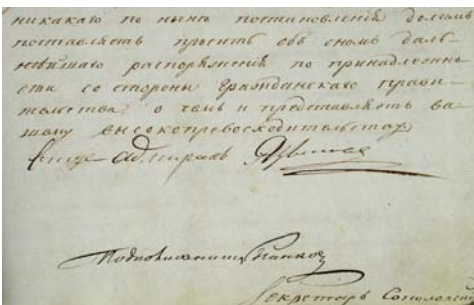 никакаго по нынѣ постановленія долгомъ
поставляетъ просить объ ономъ даль-
нѣйшаго распоряженія по принадлежно-
сти со стороны Гражданскаго прави-
тельства, о чемъ и представляетъ ва-
шему высокопревосходительству
Вице-адмиралъ
Подполковникъ
Секретарь